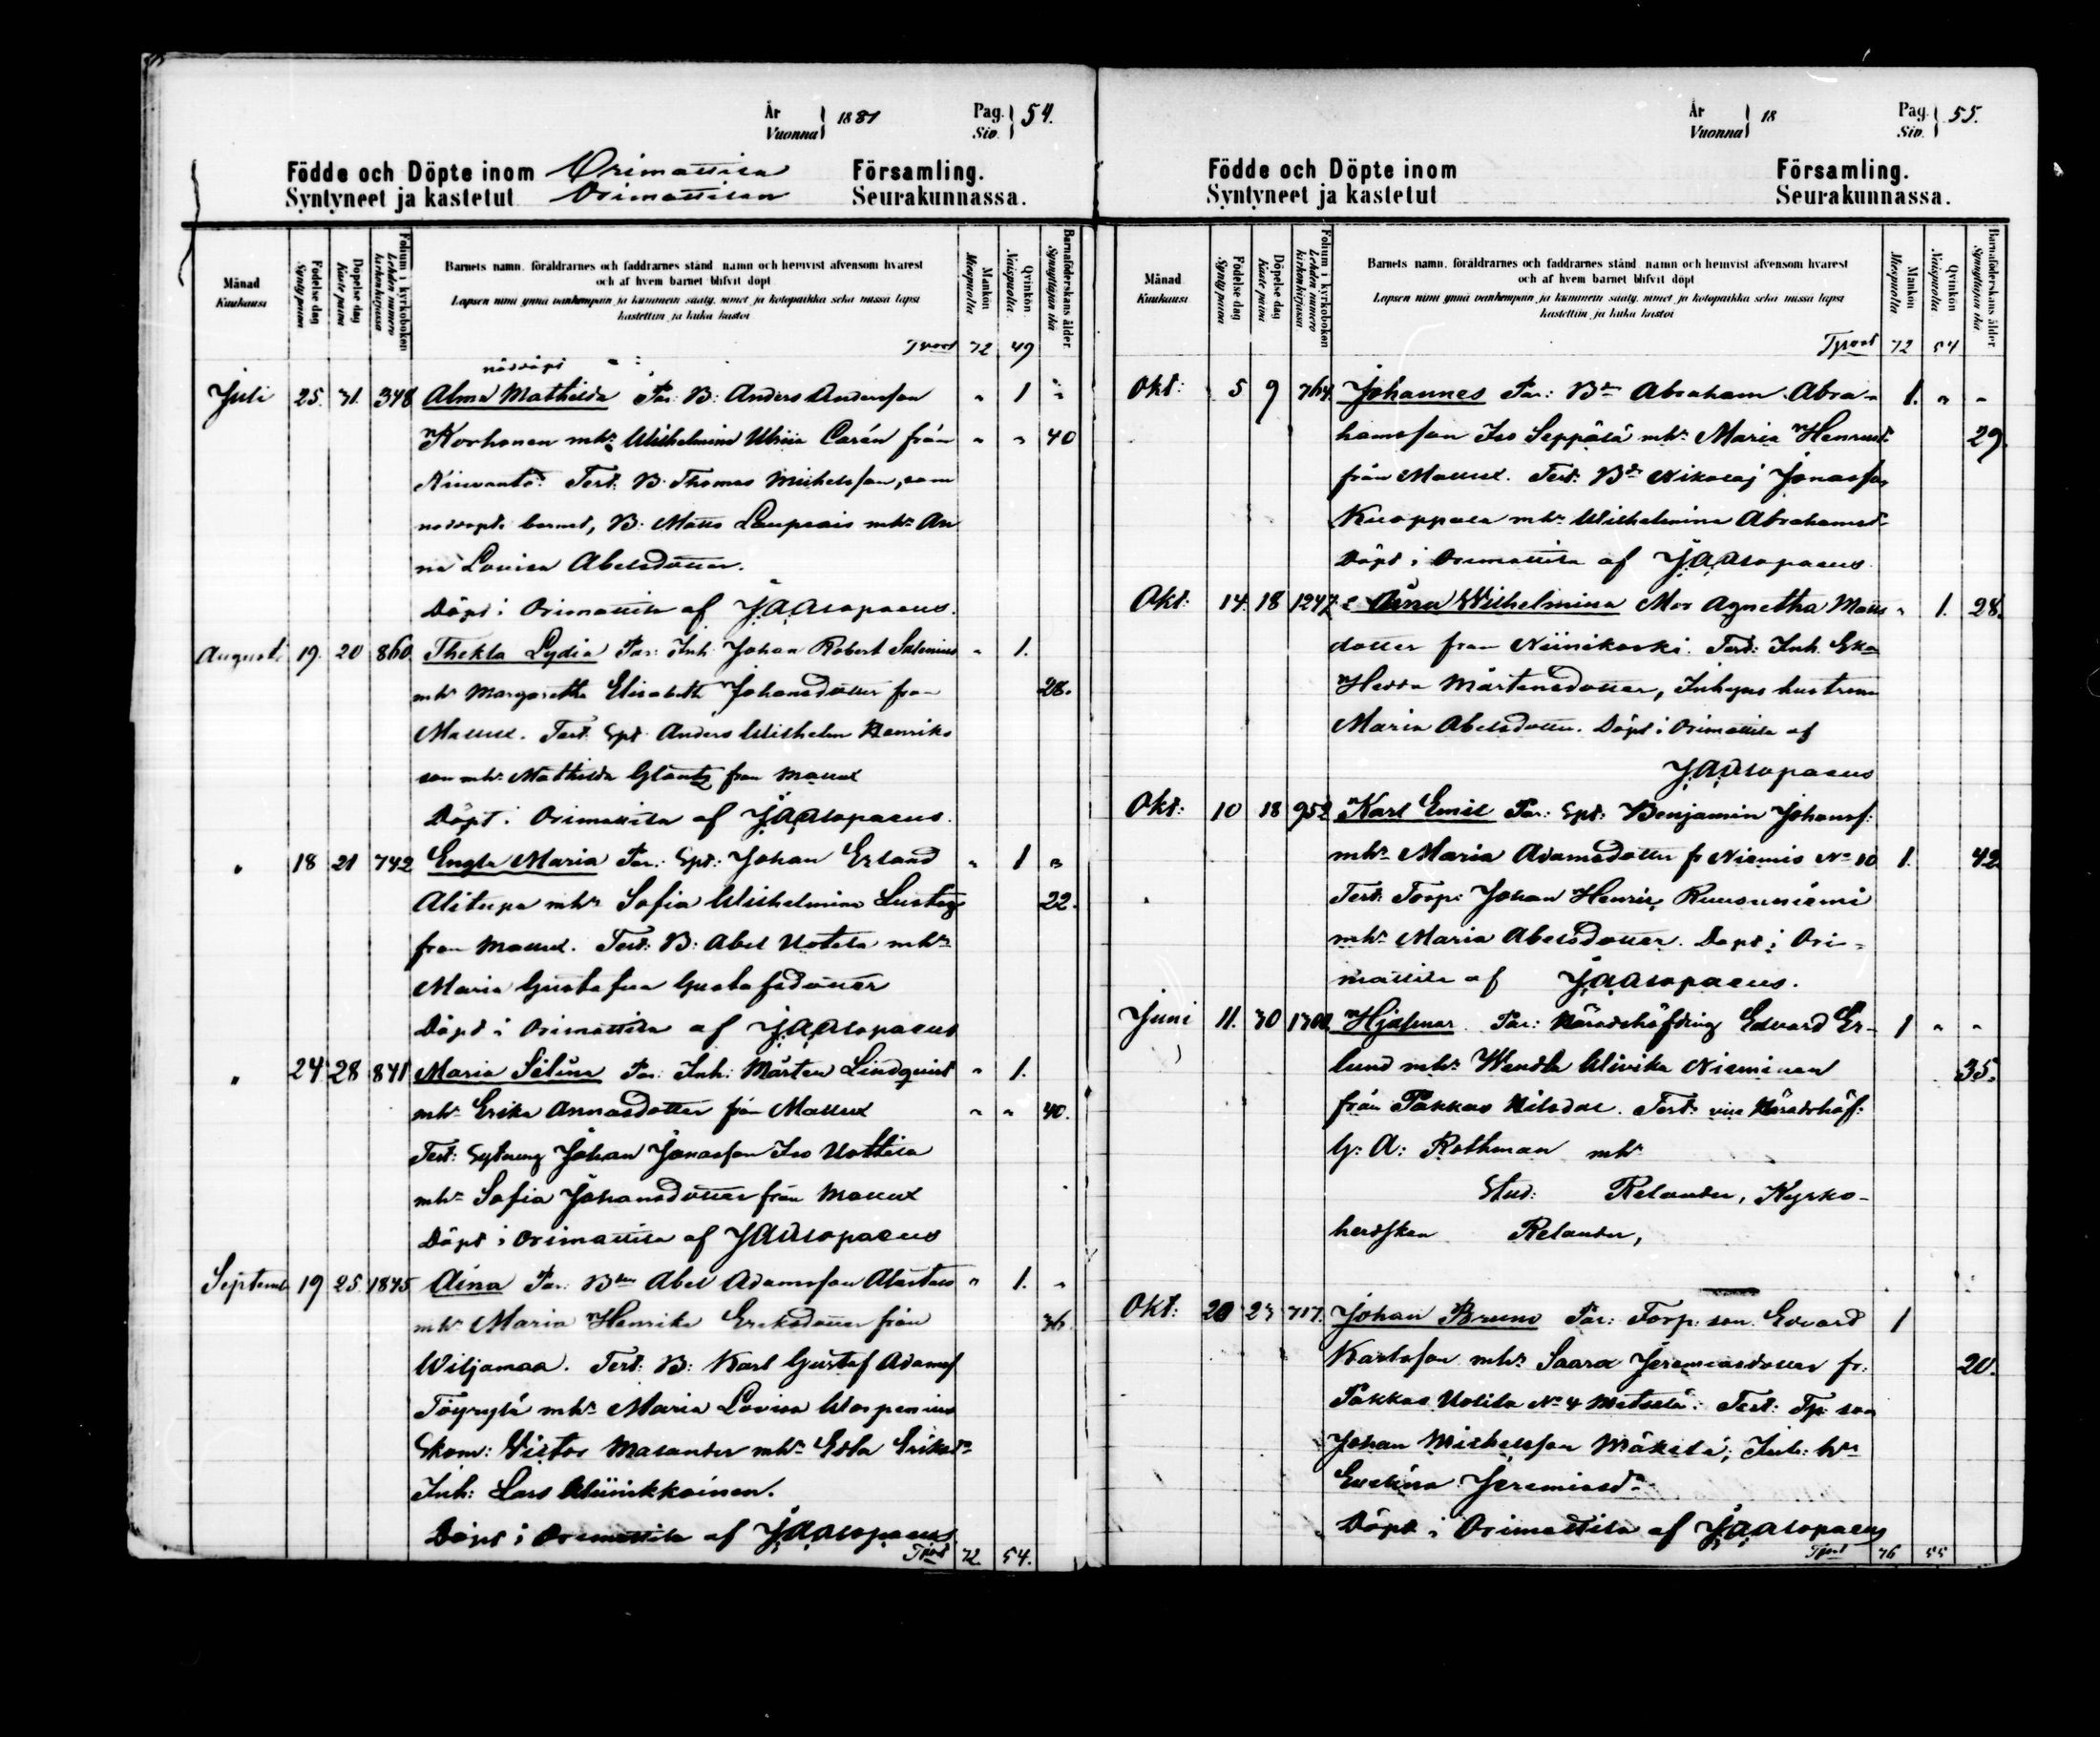 År
Vuonna 1881
Pag.
Siv. 54.
Födde och Döpte inom Orimattila Församling.
Syntyneet ja kastetut Orimattilan Seurakunnassa.
Månad
Kuukausi
Födelse dag
Synty päivä
Döpelse dag
Kaste päivä
Folium i kyrkoboken
Lehden numero kirkonkirjassa
Barnets namn, föräldrarnes och faddrarnes stånd namn och hemvist äfvensom hvarest
och af hvem barnet blifvit döpt
Lapsen nimi ynnä vanhempain ja kummein sääty, nimet ja kotopaikka sekä missä lapsi
kastettiin ja kuka kastoi
Mankön
Miespuolta
Qvinkön
Naispuolta
Barnaföderskans ålder
Synnyttäjän ikä
Tport 72 49
nöddöpt
Juli 25. 31. 348 Alma Mathilda För: B: Anders Andersson " 1 "
Korhonen mhr Wilhelmina Ulrica Carén från " " 40
Test: B: Thomas Michelsson, som
nöddöpt barnet, B: Matts mhr An
na Lovisa Abelsdotter.
Döpt i Orimattila af
August 19. 20 860 Thekla Lydia För: Inh: Johan Robert Salenius " 1.
mhr Margaretha Elisabeth Johansdotter från 28.
Test: Spt: Anders Wilhelm Henriks
son mhr Mathilda Glantz från
Döpt i Orimattila af
" 18 21 742 Engla Maria För: Spt: Johan Erland " 1 "
Alitupa mhr Sofia Wilhelmina Lustig 22.
från Test: B: Abel Uotila mhr
Maria Gustafva Gustafsdotter
Döpt i Orimattila af
" 24 28 841 Maria Selina För: Inh: Mårten Lindqvist " 1.
mhr Erika Annasdotter från " " 40.
Test: Sytning Johan Jonasson Iso Uottila
mhr Sofia Johansdotter från
Döpt i Orimattila af
Septemb. 19 25 1845 Aina För: Bden Abel Adamsson " 1. "
mhr Maria Henrika Eriksdotter från 36.
Wiljamaa. Test: B: Karl Gustaf Adamss
Töyrylä mhr Maria Lovisa
Skom: Victor Malander mhr Edla Eriksdr
Inh: Lars
Döpt i Orimattila af
Tport 72 54.
År
Vuonna 18
Pag.
Siv. 55.
Födde och Döpte inom Församling.
Syntyneet ja kastetut Seurakunnassa.
Månad
Kuukausi
Födelse dag
Synty päivä
Döpelse dag
Kaste päivä
Folium i kyrkoboken
Lehden numero kirkonkirjassa
Barnets namn, föräldrarnes och faddrarnes stånd namn och hemvist äfvensom hvarest
och af hvem barnet blifvit döpt
Lapsen nimi ynnä vanhempain ja kummein sääty, nimet ja kotopaikka sekä missä lapsi
kastettiin ja kuka kastoi
Mankön
Miespuolta
Qvinkön
Naispuolta
Barnaföderskans ålder
Synnyttäjän ikä
Tport 72 54
Okt: 5 9 764 Johannes För: Bn Abraham Abra- 1. " "
hamsson Iso Seppälä mhr Maria Henriksd: 29.
från Test: Bdn Nikolaj Jonasson
Kuoppala mhr Wilhelmina Abrahamsdr
Döpt i Orimattila af
Okt: 14. 18 1247 Aina Wilhelmina Mor Agnetha Matts " 1. 28.
dotter från Niinikoski. Test: Inh. Enka
Hedda Mårtensdotter, Inhyses hustrun
Maria Abelsdotter. Döpt i Orimattila af
Okt: 10 18 952 Karl Emil För: Spt: Benjamin Johanss:
mhr Maria Adamsdotter fr Niemis No 10 1. 42
Test: Torp: Johan Henric Ruusuniemi
mhr Maria Abelsdotter. Döpt i Ori-
mattila af
Juni 11. 30 1300 Hjalmar. För: Häradshöfding Edvard Er- 1 " "
lund mhr Wendla Ulrika Nieminen 35.
från Pakkas Test: vice Häradshöf:
G: A: Rothman mhr
Stud: Relander, Kyrko-
herdskan Relander,
Okt: 20 23 717. Johan Bruno För: Torp: son Edvard 1
Karlsson mhr Saara Jeremiasdotter fr: 20.
Pakkas Uotila No 4 Metsälä: Test: Tp: son
Johan Michelsson Mäkelä; Inh: hn
Evelina Jeremiasdr
Döpt i Orimattila af
Tport 76 55